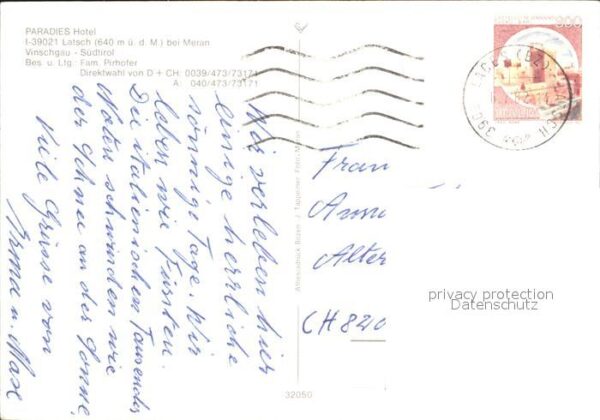 PARADIES Hotel
I-39021 Latsch (640 m ü. d. M.) bei Meran
Vinschgau - Südtirol
Bes. u. Ltg.: Fam. Pirhofer
Direktwahl von D + CH: 0039/473/73171
A: 040/473/73171
Wir verleben hier
einige herrliche
sonnige Tage. Wir
leben wie Fürsten.
Die italienischen Tausender
Noten schwinden wie
der Schnee an der Sonne.
Viele Grüsse von
Irma u. Max
Athesiadruck Bozen / Tappeiner Foto-Meran
32050
300
LACES (BZ) LATSCH
390
Frau
Anna
Alter
CH 820
privacy protection
Datenschutz